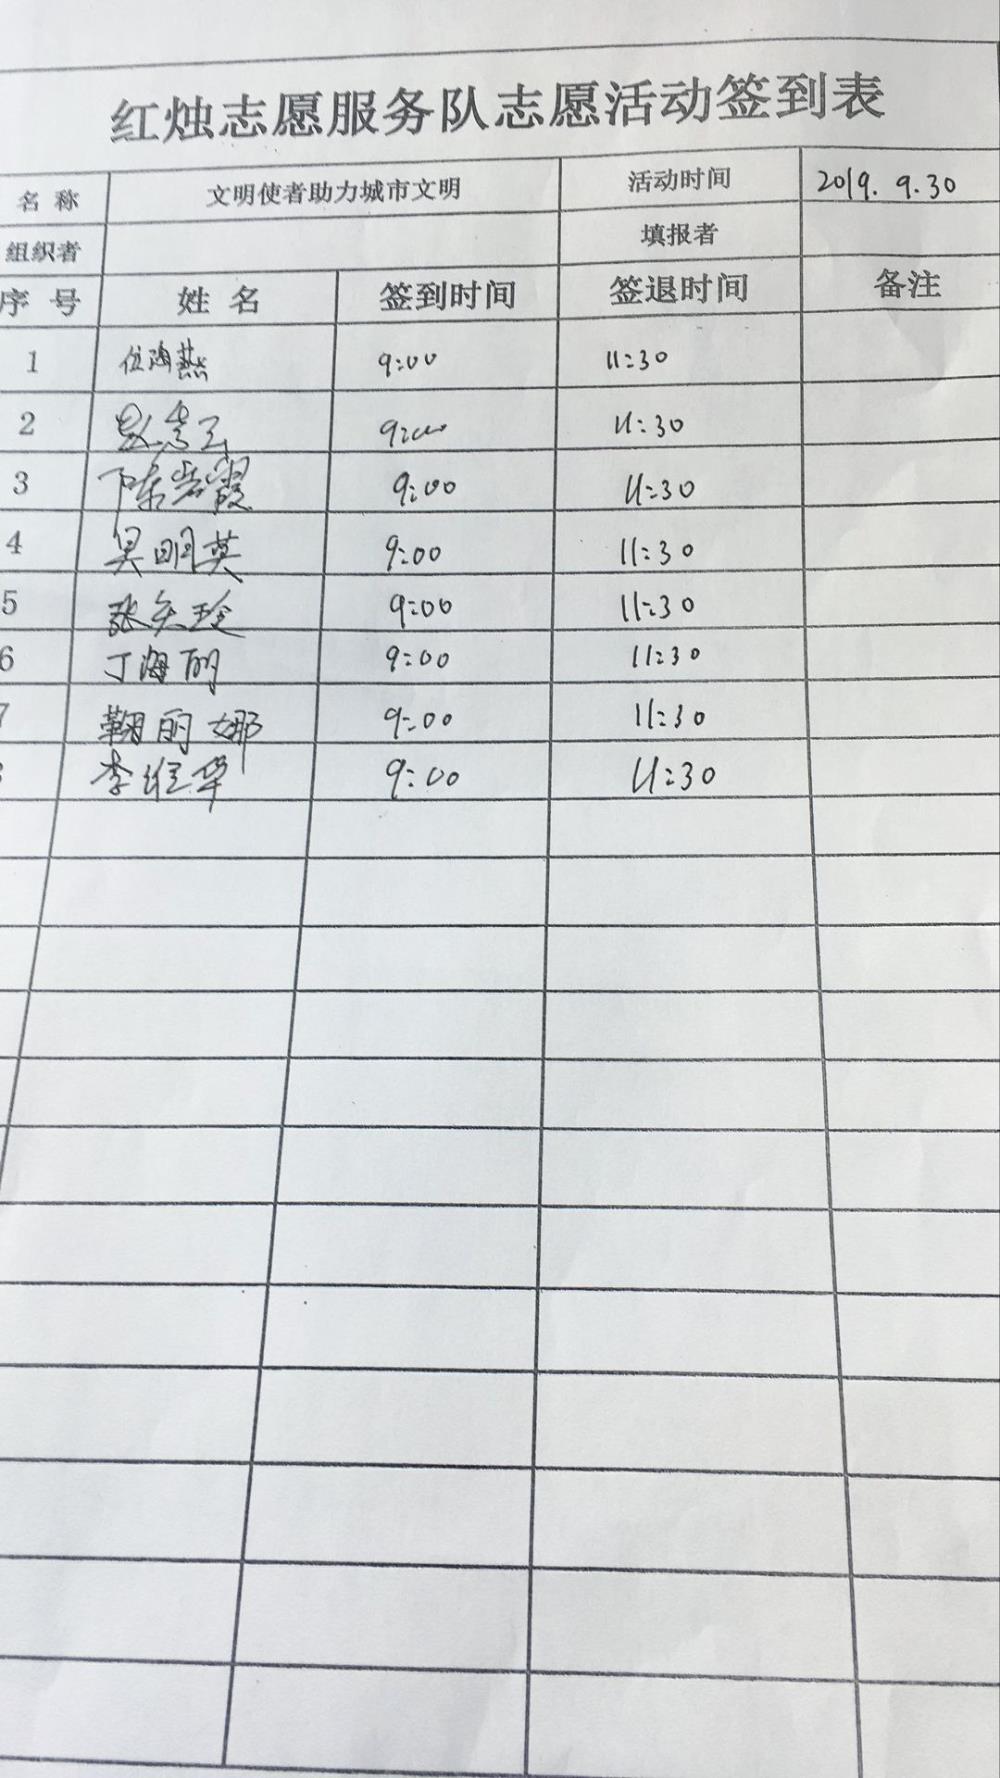 红烛志愿服务队志愿活动签到表
名称 文明使者助力城市文明 活动时间 2019.9.30
组织者 填报者
序号 姓名 签到时间 签退时间 备注
1 9:00 11:30
2 9:00 11:30
3 陈岩霞 9:00 11:30
4 吴明英 9:00 11:30
5 9:00 11:30
6 丁海丽 9:00 11:30
7 鞠丽娜 9:00 11:30
李维华 9:00 11:30